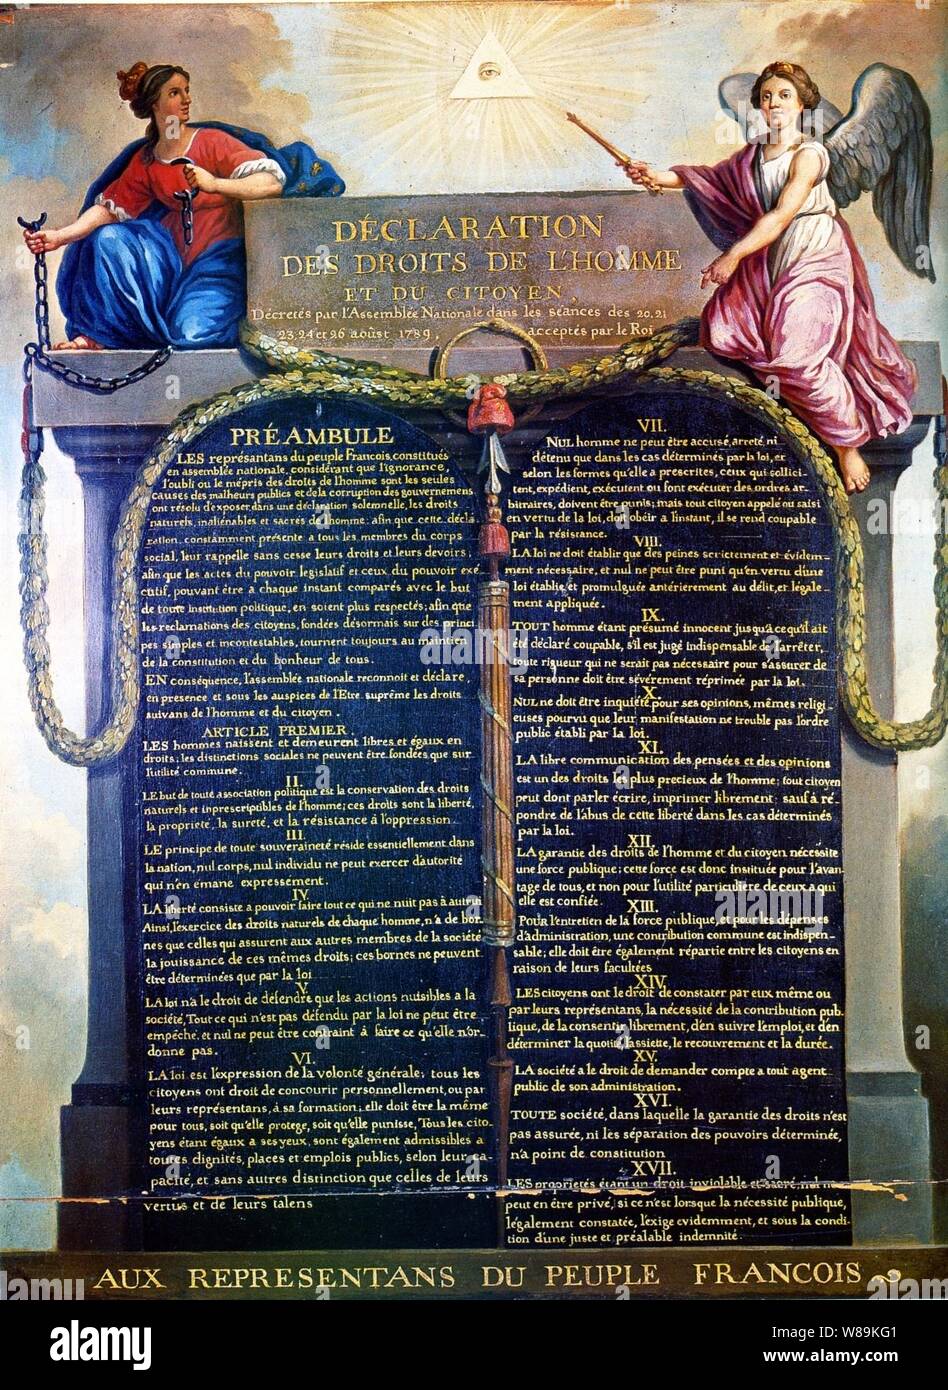 DÉCLARATION
DES DROITS DE L'HOMME
ET DU CITOYEN,
Décretés par l'Assemblée Nationale dans les séances des 20.21
23.24 et 26 août 1789, acceptés par le Roi
PRÉAMBULE
LES représantans du peuple Francois, constitués
en assemblée nationale, considérant que l'ignorance,
l'oubli ou le mépris des droits de l'homme sont les seules
causes des malheurs publics et de la corruption des gouvernemens
ont résolu d'exposer, dans une déclaration solemnelle, les droits
naturels, inaliénables et sacrés de l'homme; afin que cette décla
ration, constamment présente a tous les membres du corps
social, leur rappelle sans cesse leurs droits et leurs devoirs,
afin que les actes du pouvoir législatif et ceux du pouvoir exé
cutif, pouvant être a chaque instant comparés avec le but
de toute institution politique, en soient plus respectés; afin que
les reclamations des citoyens, fondées désormais sur des princi
pes simples et incontestables, tournent toujours au maintien
de la constitution et du bonheur de tous.
EN conséquence, l'assemblée nationale reconnoit et déclare,
en presence et sous les auspices de l'Etre suprême les droits
suivans de l'homme et du citoyen.
ARTICLE PREMIER.
LES hommes naissent et demeurent libres et égaux en
droits; les distinctions sociales ne peuvent être fondées que sur
l'utilité commune.
II.
LE but de toute association politique est la conservation des droits
naturels et inprescriptibles de l'homme; ces droits sont la liberté,
la propriété, la sureté, et la résistance à l'oppression.
III.
LE principe de toute souveraineté réside essentiellement dans
la nation, nul corps, nul individu ne peut exercer d'autorité
qui n'en émane expressément.
IV.
LA liberté consiste a pouvoir faire tout ce qui ne nuit pas à autrui
Ainsi, l'exercice des droits naturels de chaque homme, n'a de bor-
nes que celles qui assurent aux autres membres de la société
la jouissance de ces mêmes droits; ces bornes ne peuvent
être déterminées que par la loi
V.
LA loi n'a le droit de défendre que les actions nuisibles a la
société, Tout ce qui n'est pas défendu par la loi ne peut être
empêché, et nul ne peut être contraint à faire ce qu'elle n'or-
donne pas.
VI.
LA loi est l'expression de la volonté générale; tous les
citoyens ont droit de concourir personnellement, ou par
leurs représentans, à sa formation; elle doit être la même
pour tous, soit qu'elle protege, soit qu'elle punisse, Tous les cito-
yens étant égaux a ses yeux, sont également admissibles a
toutes dignités, places et emplois publics, selon leur ca-
pacité, et sans autres distinction que celles de leurs
vertus et de leurs talens
VII.
NUL homme ne peut être accusé, arreté, ni
détenu que dans les cas déterminés par la loi, et
selon les formes qu'elle a prescrites, ceux qui sollici-
tent, expédient, exécutent ou font exécuter des ordres ar-
bitraires, doivent être punis; mais tout citoyen appelé ou saisi
en vertu de la loi, doit obéir a l'instant, il se rend coupable
par la résistance.
VIII.
LA loi ne doit établir que des peines strictement et évidem-
ment nécessaire, et nul ne peut être puni qu'en vertu d'une
loi établie, et promulguée antérierement au délit, et légale-
ment appliquée.
IX.
TOUT homme étant présumé innocent jusqu'a ce qu'il ait
été déclaré coupable, s'il est jugé indispensable de l'arrêter,
toute rigueur qui ne serait pas nécessaire pour s'assurer de
sa personne doit être sévèrement réprimée par la loi.
X.
NUL ne doit être inquiété pour ses opinions, mêmes religi-
euses pourvu que leur manifestation ne trouble pas l'ordre
public établi par la loi.
XI.
LA libre communication des pensées et des opinions
est un des droits les plus precieux de l'homme; tout citoyen
peut dont parler écrire, imprimer librement; sauf à ré-
pondre de l'abus de cette liberté dans les cas déterminés
par la loi.
XII.
LA garantie des droits de l'homme et du citoyen nécessite
une force publique; cette force est donc instituée pour l'avan-
tage de tous, et non pour l'utilité particulière de ceux a qui
elle est confiée.
XIII.
POUR l'entretien de la force publique, et pour les dépenses
d'administration, une contribution commune est indispen-
sable; elle doit être également répartie entre les citoyens en
raison de leurs facultées
XIV.
LES citoyens ont le droit de constater par eux même ou
par leurs représentans, la nécessité de la contribution pub-
lique, de la consentir librement, d'en suivre l'emploi, et d'en
déterminer la quotité, l'assiette, le recouvrement et la durée.
XV.
LA société a le droit de demander compte a tout agent
public de son administration.
XVI.
TOUTE société, dans laquelle la garantie des droits n'est
pas assurée, ni les séparation des pouvoirs déterminée,
n'a point de constitution
XVII.
LES proprietés étant un droit inviolable et sacré, nul ne
peut en être privé, si ce n'est lorsque la nécessité publique,
légalement constatée, l'exige evidemment, et sous la condi-
tion d'une juste et préalable indemnité.
AUX REPRESENTANS DU PEUPLE FRANCOIS
alamy
alamy
Image ID: W89KG1
www.alamy.com